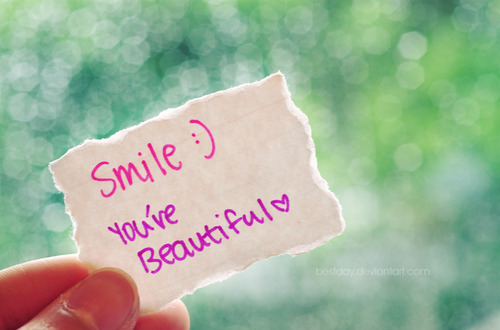 Smile :)
You've
Beautiful♡
bestday.deviantart.com